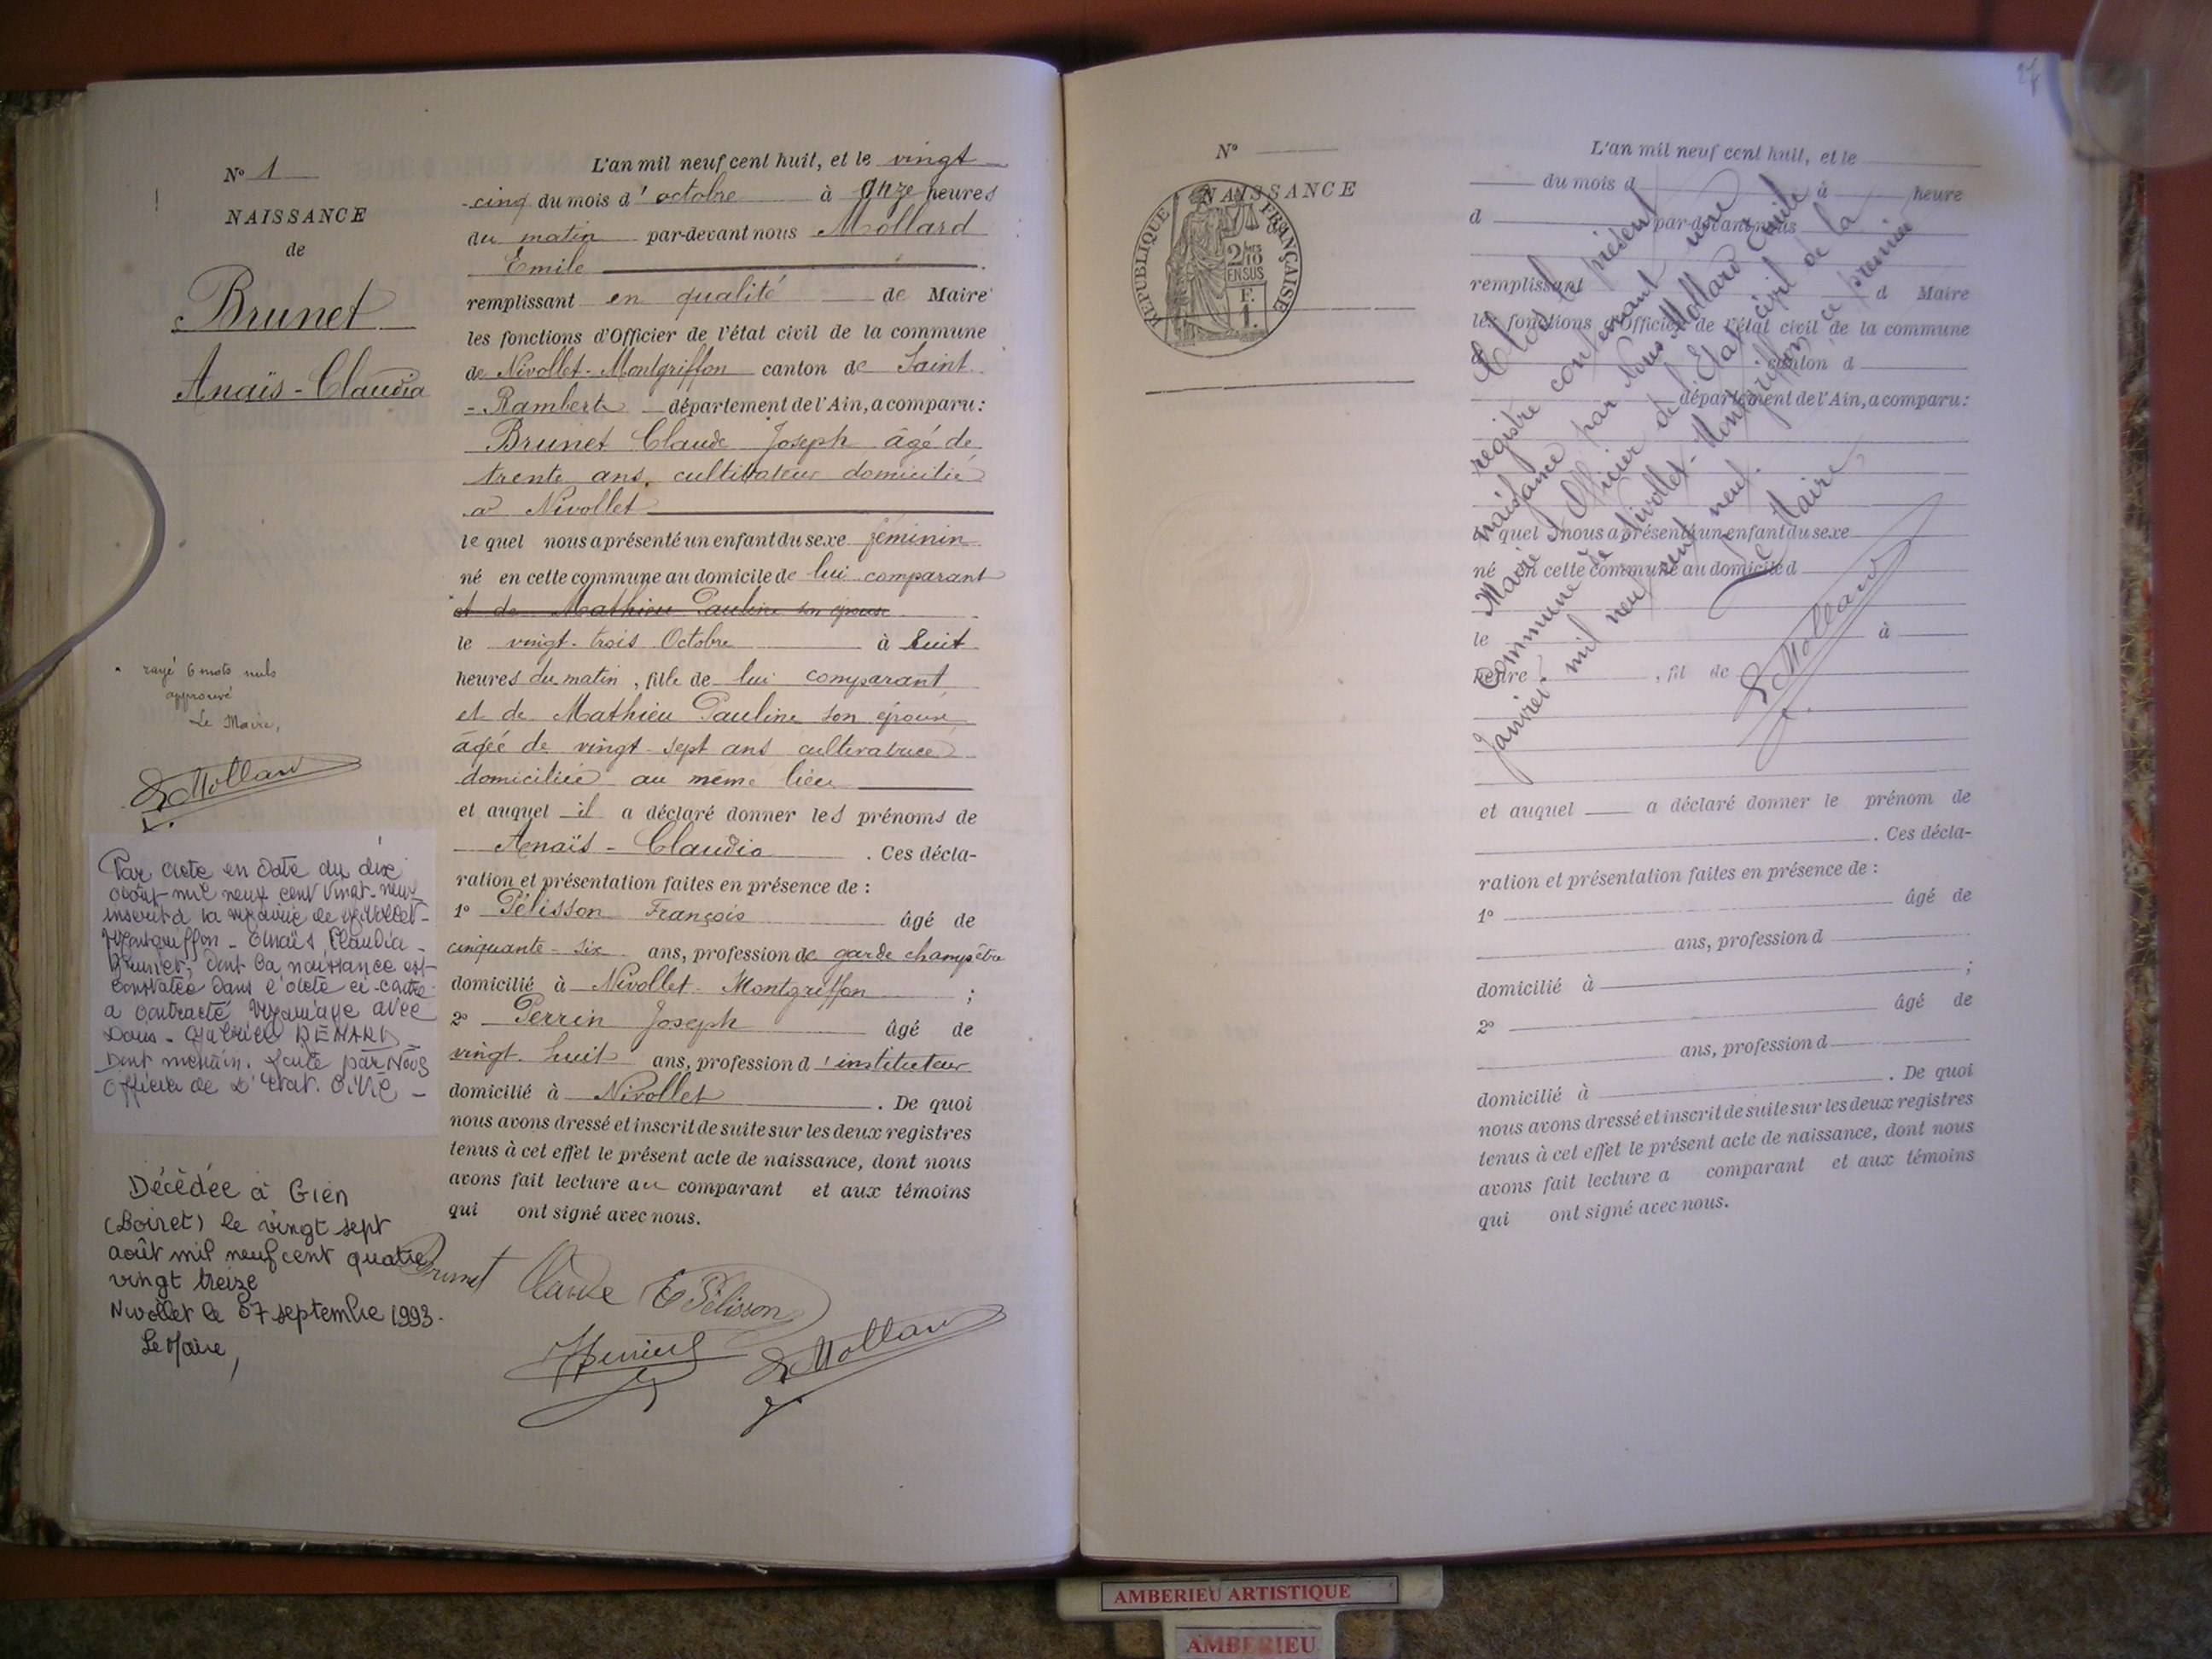 N° 1
NAISSANCE
de
Brunet
Anaïs-Claudia
rayé 6 mots nuls
approuvé
Le Maire,
E Mollard
Par acte en date du dix
août mil neuf cent vingt-neuf
inscrit à la mairie de Nivollet-
Montgriffon - Anaïs Claudia -
Brunet, dont la naissance est
constatée dans l'acte ci-contre
a contracté mariage avec
Louis - Gabriel RENARD
Dont mention. Faite par Nous
Officier de l'Etat. Civil -
Décèdée à Gien
(Loiret) le vingt sept
août mil neuf cent quatre
vingt treize
Nivollet le 07 septembre 1993.
Le Maire,
L'an mil neuf cent huit, et le vingt
-cinq du mois d'octobre à onze heures
du matin par-devant nous Mollard
Emile
remplissant en qualité de Maire
les fonctions d'Officier de l'état civil de la commune
de Nivollet-Montgriffon canton de Saint
-Rambert département de l'Ain, a comparu:
Brunet Claude Joseph âgé de
trente ans, cultivateur domicilié
a Nivollet
lequel nous a présenté un enfant du sexe féminin
né en cette commune au domicile de lui comparant
et de Mathieu Pauline son épouse
le vingt-trois Octobre à huit
heures du matin, fille de lui comparant
et de Mathieu Pauline son épouse
âgée de vingt-sept ans cultivatrice
domiciliée au même lieu
et auquel il a déclaré donner les prénoms de
Anaïs-Claudia. Ces décla-
ration et présentation faites en présence de :
1° Pélisson François âgé de
cinquante-six ans, profession de garde champêtre
domicilié à Nivollet-Montgriffon ;
2° Perrin Joseph âgé de
vingt-huit ans, profession d'instituteur
domicilié à Nivollet. De quoi
nous avons dressé et inscrit de suite sur les deux registres
tenus à cet effet le présent acte de naissance, dont nous
avons fait lecture au comparant et aux témoins
qui ont signé avec nous.
Brunet Claude Pélisson
E Mollard
27
N°
NAISSANCE
REPUBLIQUE FRANÇAISE
2/10
EN SUS
F.
1.
L'an mil neuf cent huit, et le
du mois d à heure
d par-devant nous
remplissant d Maire
les fonctions d'Officier de l'état civil de la commune
d canton d
département de l'Ain, a comparu:
lequel nous a présenté un enfant du sexe
né en cette commune au domicile d
le à
heure , fil de
et auquel a déclaré donner le prénom de
. Ces décla-
ration et présentation faites en présence de :
1° âgé de
ans, profession d
domicilié à ;
2° âgé de
ans, profession d
domicilié à . De quoi
nous avons dressé et inscrit de suite sur les deux registres
tenus à cet effet le présent acte de naissance, dont nous
avons fait lecture a comparant et aux témoins
qui ont signé avec nous.
Clos le présent
registre contenant une
naissance par Nous Mollard Emile
Maire Officier de l'Etat civil de la
Commune de Nivollet-Montgriffon, ce premier
Janvier mil neuf cent neuf.
Le Maire,
E Mollard
AMBERIEU ARTISTIQUE
AMBERIEU